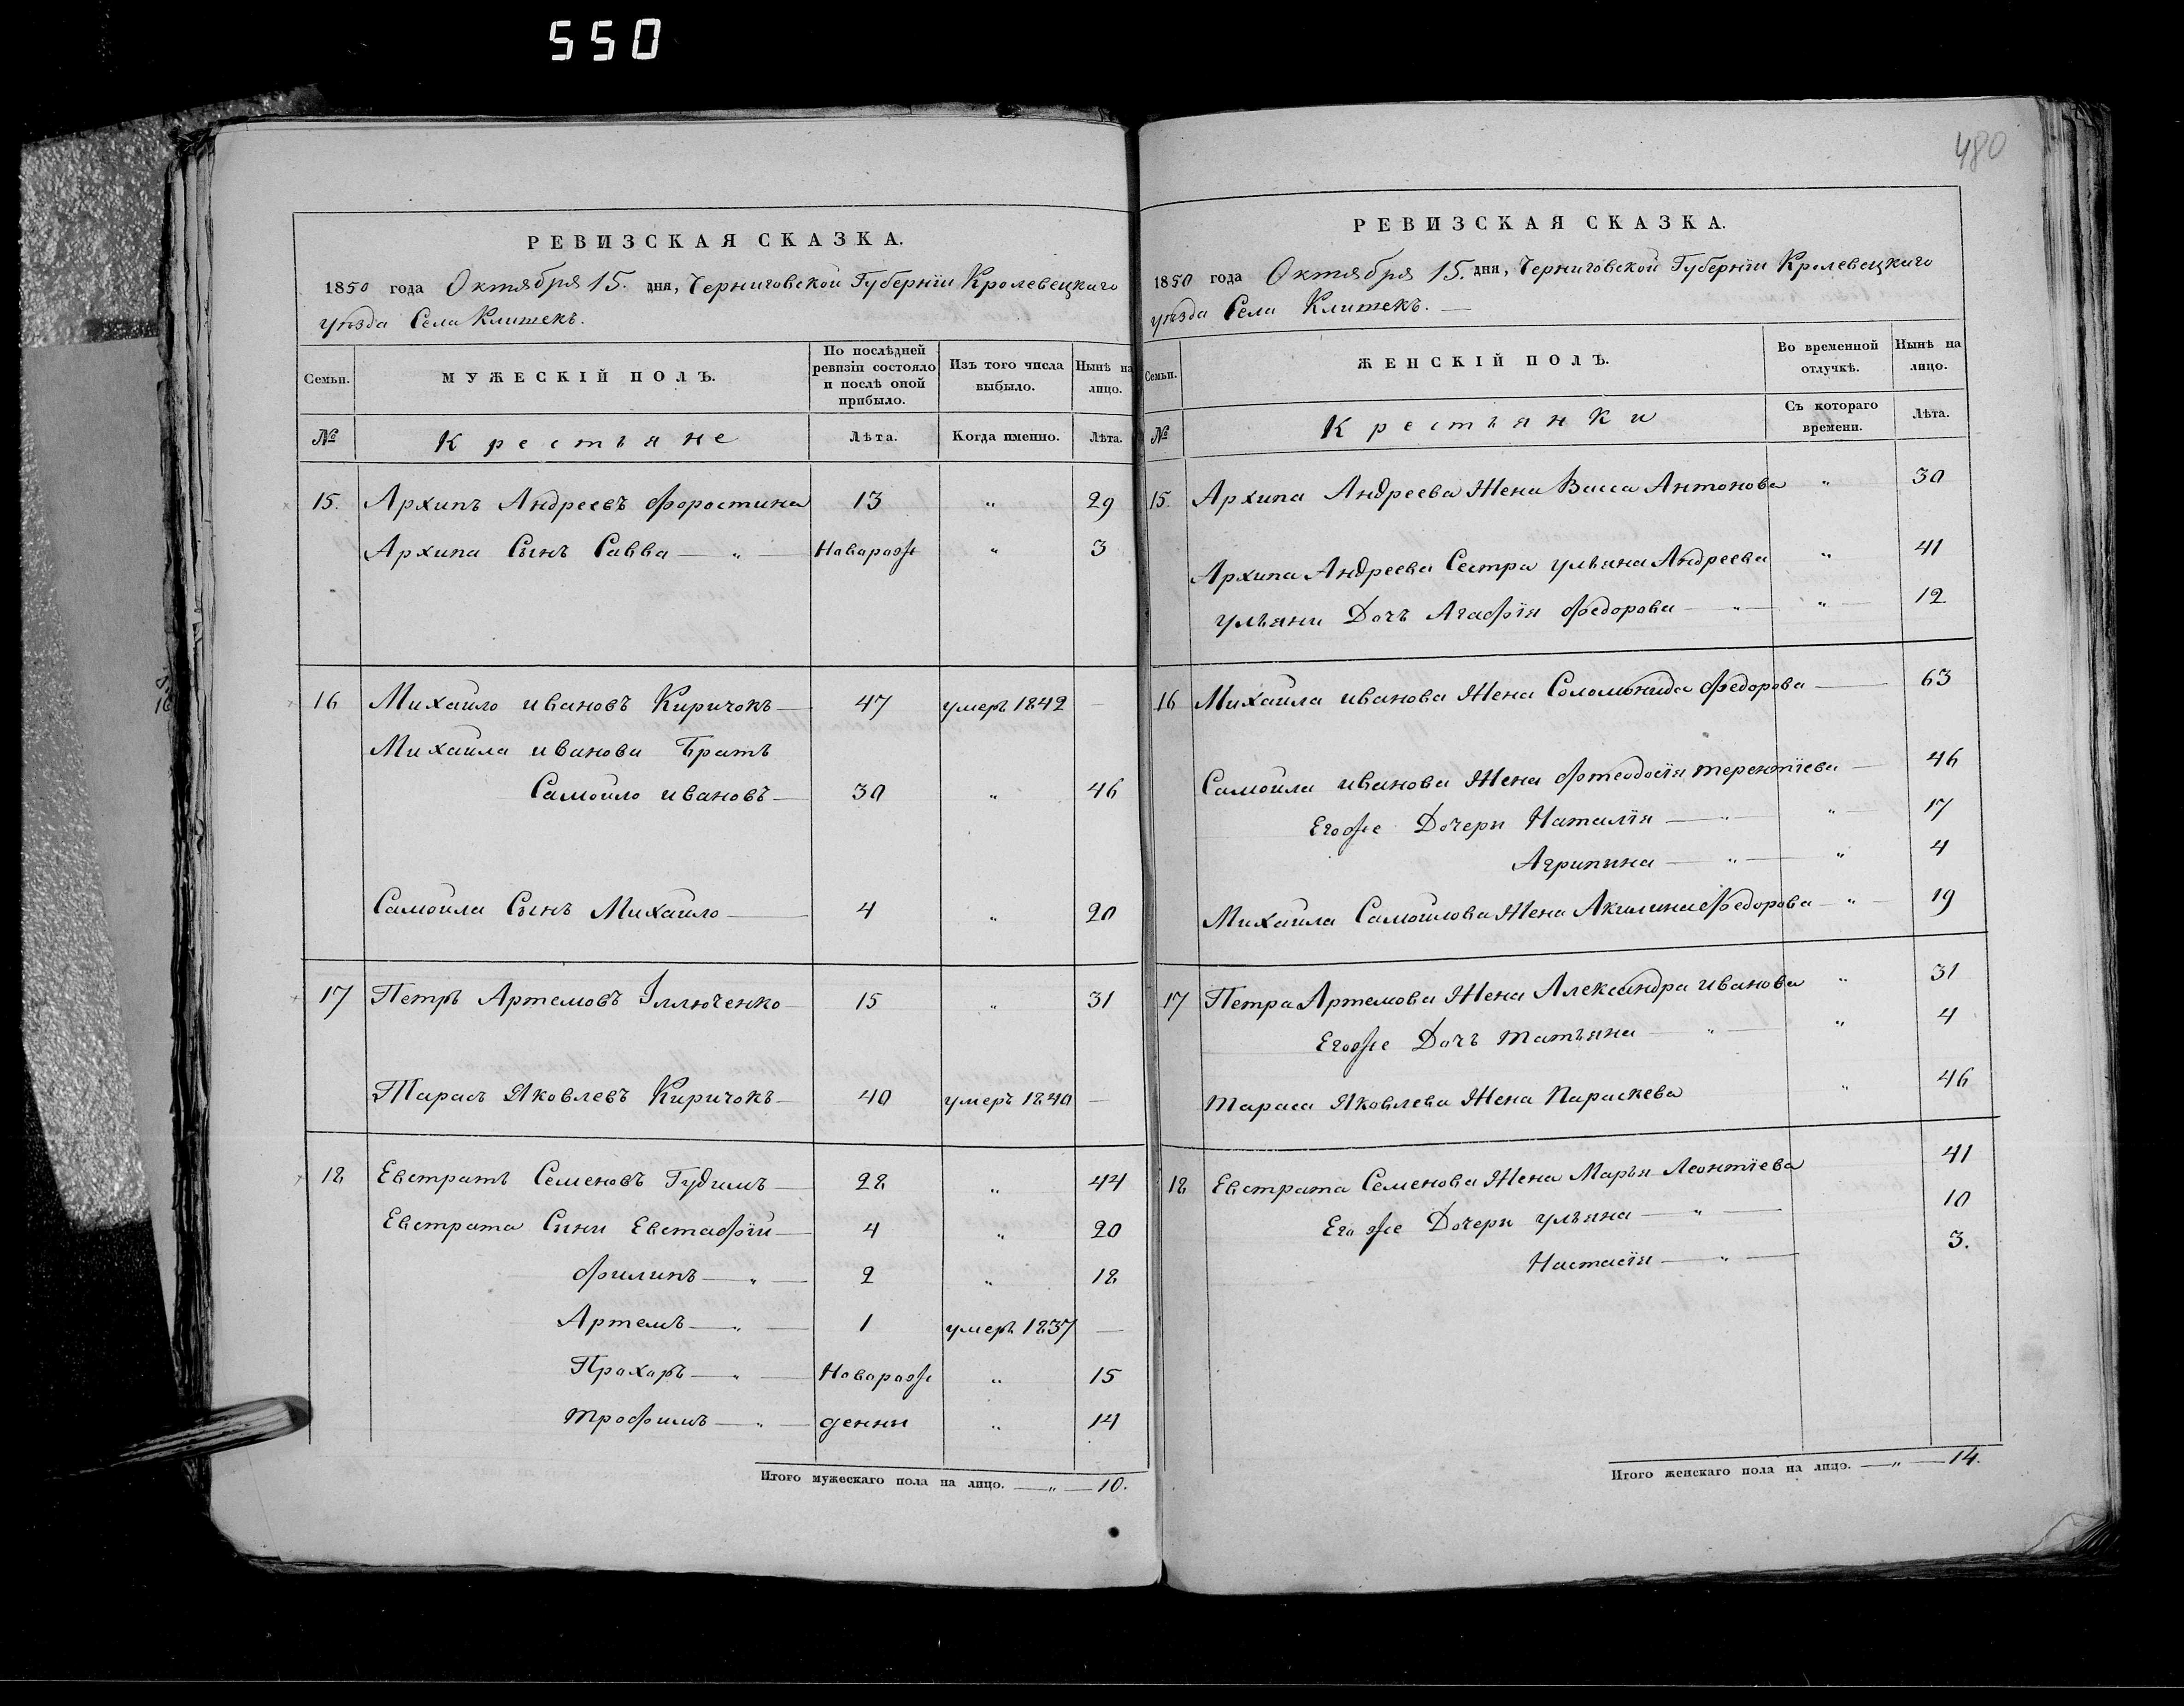 550
480
РЕВИЗСКАЯ СКАЗКА.
1850 года Октября 15. дня, Черниговской Губерніи Кролевецкаго
уѣзда Села Клишекъ.
Семьи. МУЖЕСКІЙ ПОЛЪ. По послѣдней ревизіи состояло и послѣ оной прибыло. Изъ того числа выбыло. Нынѣ на лицо.
№ Крестьяне Лѣта. Когда именно. Лѣта.
15. Архипъ Андреевъ Форостина 13 „ 29
Архипа Сынъ Савва — „ — Новарож „ 3
16 Михайло ивановъ Киричокъ — 47 умеръ 1842 —
Михайла иванова Братъ
Самойло ивановъ — 30 „ 46
Самойла Сынъ Михайло — 4 „ 20
17 Петръ Артемовъ Іллюченко — 15 „ 31
Тарасъ Яковлевъ Киричокъ — 40 умеръ 1840 —
18 Евстратъ Семеновъ Гудимъ — 28 „ 44
Евстрата Сини Евстафій — 4 „ 20
Филипъ — „ — 2 „ 18
Артемъ — „ — 1 умеръ 1837 —
Прохоръ — „ — Новорож „ 15
Трофимъ — „ — денни „ 14
Итого мужескаго пола на лицо. — „ — 10.
РЕВИЗСКАЯ СКАЗКА.
1850 года Октября 15. дня, Черниговской Губерніи Кролевецкаго
уѣзда Села Клишекъ. —
Семьи. ЖЕНСКІЙ ПОЛЪ. Во временной отлучкѣ. Нынѣ на лицо.
№ Крестьянки Съ котораго времени. Лѣта.
15. Архипа Андреева Жена Васса Антонова „ 30
Архипа Андреева Сестра ульяна Андреева „ 41
ульяни Дочъ Агафія Федорова — „ — „ — 12
16 Михайла иванова Жена Соломонида Федорова — 63
Самойла иванова Жена Фтеодосія терентіева — 46
Егоже Дочери Наталія — „ — „ — 17
Агрипина — „ — „ 4
Михайла Самойлова Жена Акилина Федорова — „ — 19
17 Петра Артемова Жена Александра иванова „ 31
Егоже Дочъ татьяна — „ — „ 4
тараса Яковлева Жена Параскева „ 46
18 Евстрата Семенова Жена Марья Леонтіева 41
Его же Дочери ульяна — „ — 10
Настасія — „ — 3.
Итого женскаго пола на лицо. — „ — 14.